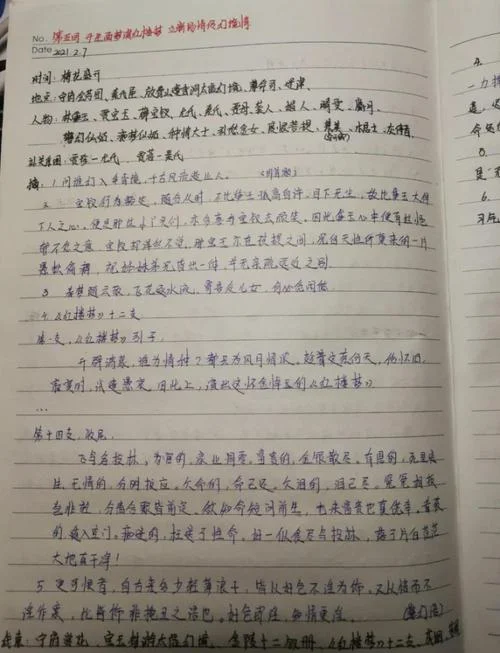 No. 第五回 开生面梦演红楼梦 立新场情传幻境情
Date 2021.2.7
时间:梅花盛开
地点:宁府会芳园、秦氏屋、放春山遣香洞太虚幻境、薄命司、迷津、
人物:林黛玉、贾宝玉、薛宝钗、尤氏、秦氏、贾母、袭人、媚人、晴雯、麝月、
警幻仙姑、痴梦仙姑、钟情大士、引愁金女、度恨菩提、木居士、灰侍者
社关系图:贾蓉—尤氏 贾蓉—秦氏
摘:1.问谁幻入华胥境,千古风流造业人。
2. 宝钗行为豁达,随分从时,不比黛玉孤高自许,目下无尘,故比黛玉大得
下人之心。便是那些小丫头们,亦多喜与宝钗去顽笑。因此黛玉心中便有些悒
郁不忿之意,宝钗却浑然不觉。那宝玉亦在孩提之间,况自天性所禀来的一片
愚拙偏僻,视姊妹弟兄皆出一体,并无亲疏远近之别
3. 春梦随云散,飞花逐水流,寄言众儿女,何必觅闲愁
4.《红楼梦》十二支
第一支,《红楼梦》引子,
开辟鸿蒙,谁为情种?都只为风月情浓。趁着这奈何天,伤怀日,
寂寥时,试遣愚衷。因此上,演出这怀金悼玉的《红楼梦》
...
第十四支,收尾,
飞鸟各投林,为官的,家业凋零,富贵的,金银散尽。有恩的,死里逃
生,无情的,分明报应。欠命的,命已还,欠泪的,泪已尽,冤冤相报
岂非轻,分离聚合皆前定,欲知命短问前生,也来富贵也真侥幸。看破
的,遁入空门。痴迷的,枉送了性命。好一似食尽鸟投林,落了片白茫茫
大地真干净!
5. 更可恨者,自古来多少轻薄浪子,皆以好色不淫为饰,又以情而不
淫作案,此皆饰非掩丑之语也。好色即淫,知情更淫。
结束:宁府游花、宝玉梦游太虚幻境、金陵十二钗册、《红楼梦》十二支、